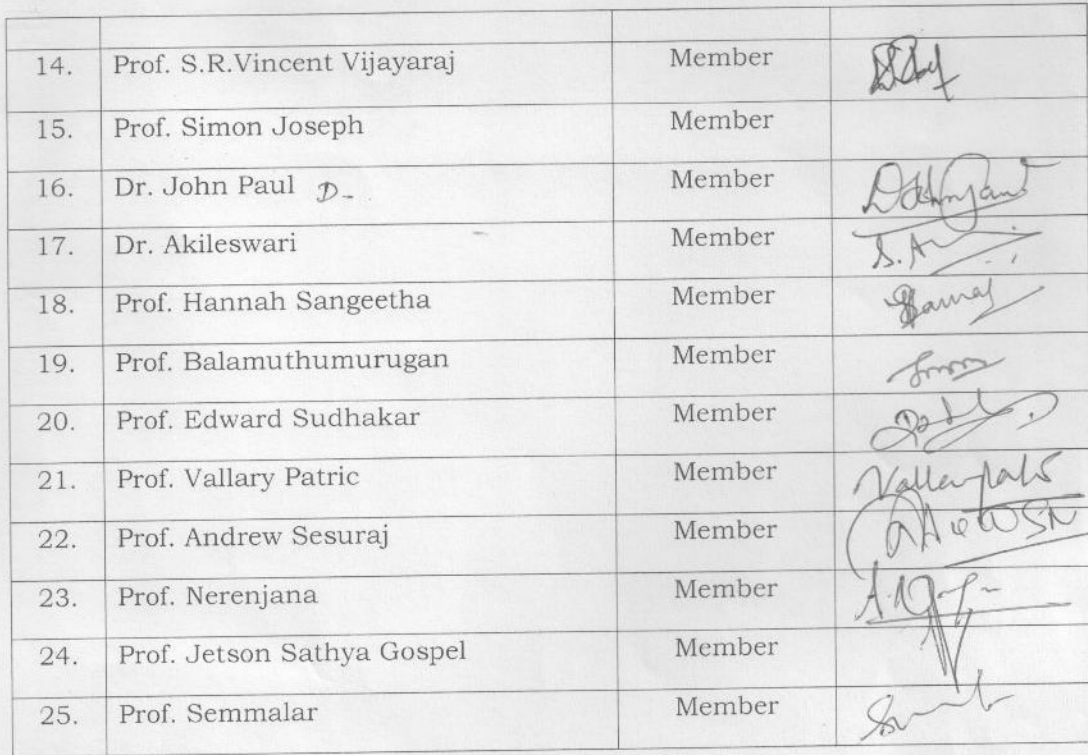 14. Prof. S.R.Vincent Vijayaraj Member
15. Prof. Simon Joseph Member
16. Dr. John Paul D. Member
17. Dr. Akileswari Member S.A
18. Prof. Hannah Sangeetha Member
19. Prof. Balamuthumurugan Member
20. Prof. Edward Sudhakar Member
21. Prof. Vallary Patric Member
22. Prof. Andrew Sesuraj Member
23. Prof. Nerenjana Member
24. Prof. Jetson Sathya Gospel Member
25. Prof. Semmalar Member